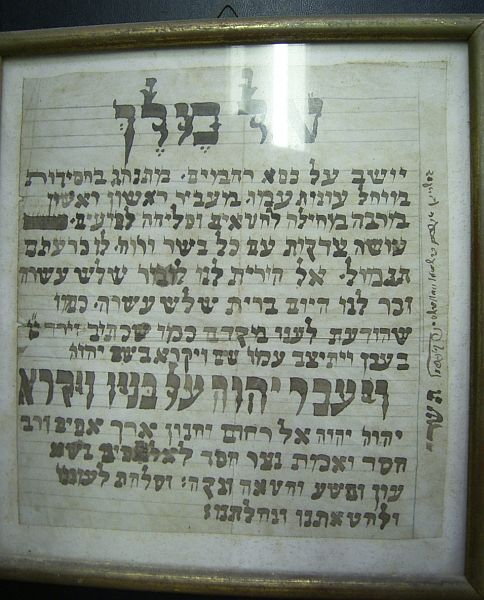 אל מלך
יושב על כסא רחמים. מתנהג בחסידות
מוחל עונות עמו. מעביר ראשון ראשון
מרבה מחילה לחטאים וסליחה לפשעים.
עושה צדקות עם כל בשר ורוח. לו כרעתם
תגמול. אל הורית לנו לומר שלש עשרה
זכר לנו היום ברית שלש עשרה. כמו
שהודעת לענו מקדם כמו שכתוב וירד
בענן ויתיצב עמו שם ויקרא בשם יהוה
ויעבר יהוה על פניו ויקרא
יהוה יהוה אל רחום וחנון ארך אפים ורב
חסד ואמת נצר חסד לאלפים נשא
עון ופשע וחטאה ונקה: וסלחת לעוננו
ולחטאתנו ונחלתנו: